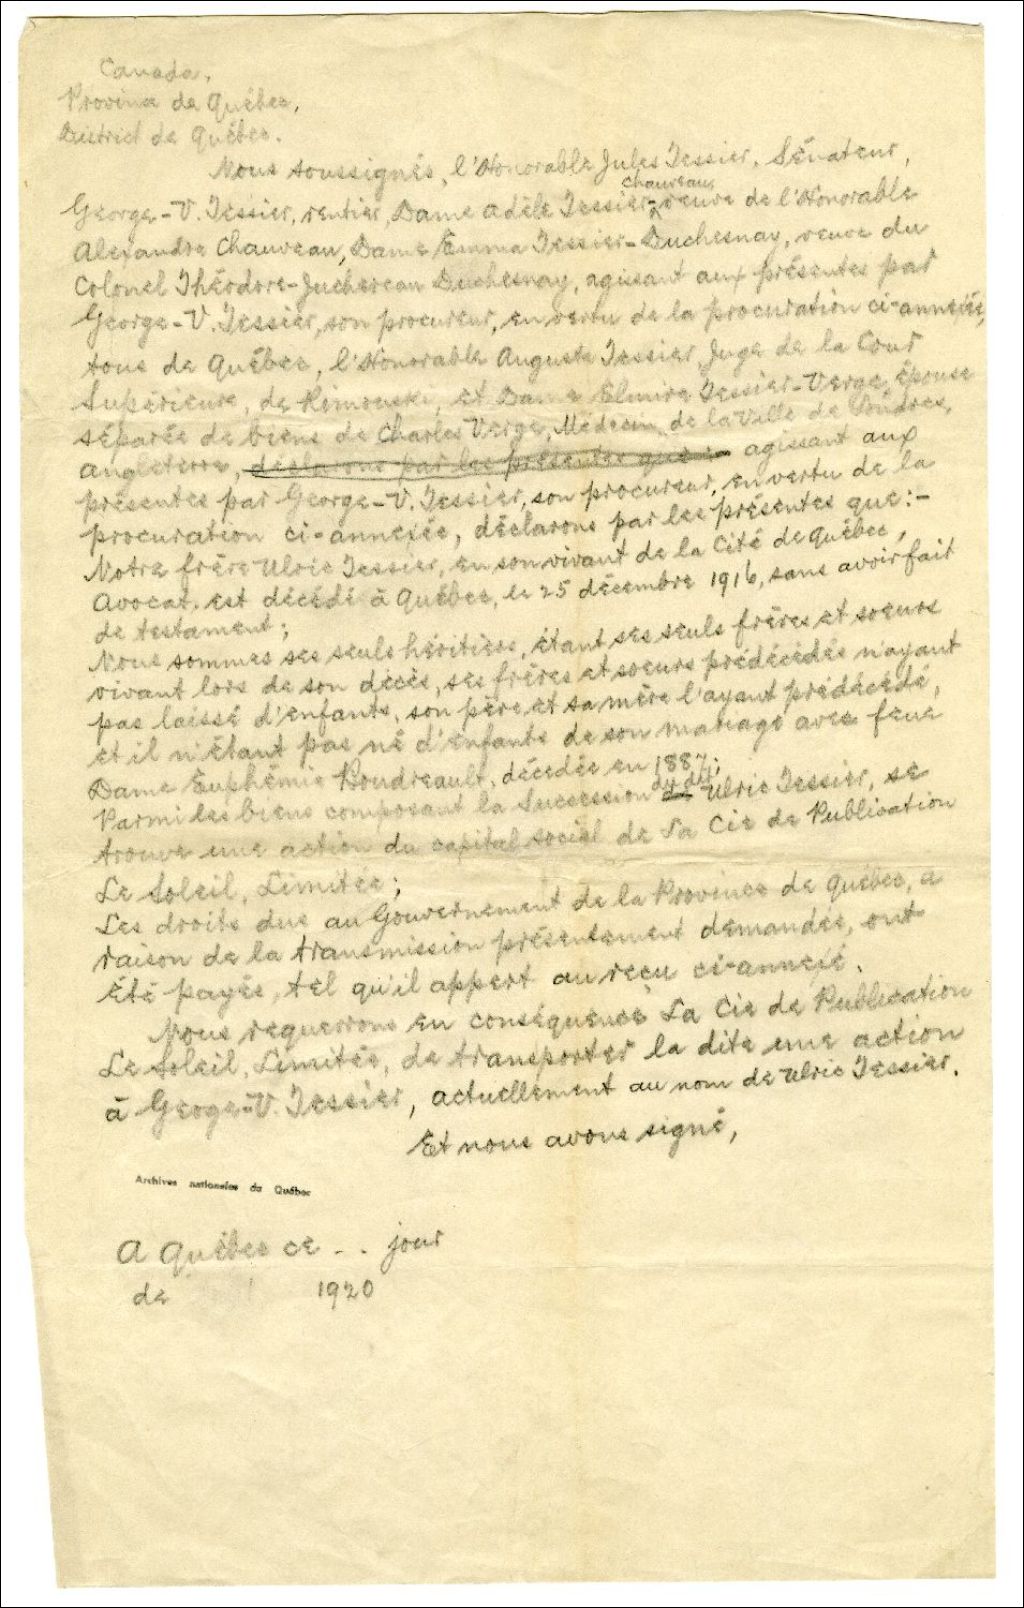 Canada,
Province de Québec,
District de Québec.
Nous soussignés, l'Honorable Jules Tessier, Sénateur,
Chauveau,
George-V. Tessier, rentier, Dame Adèle Tessier- veuve de l'Honorable
Alexandre Chauveau, Dame Emma Tessier-Duchesnay, veuve du
Colonel Théodore-Juchereau Duchesnay, agissant aux présentes par
George-V. Tessier, son procureur, en vertu de la procuration ci-annexée,
tous de Québec, l'Honorable Auguste Tessier, Juge de la Cour
Supérieure, de Rimouski, et Dame Elmire Tessier-Verge, épouse
séparée de biens de Charles Verge, Médecin, de la Ville de Londres,
Angleterre, déclarons par les présentes que :- agissant aux
présentes par George-V. Tessier, son procureur, en vertu de la
procuration ci-annexée, déclarons par les présentes que:-
Notre frère Ulric Tessier, en son vivant de la Cité de Québec,
Avocat, est décédé à Québec, le 25 décembre 1916, sans avoir fait
de testament;
Nous sommes ses seuls héritiers, étant ses seuls frères et soeurs
vivant lors de son décès, ses frères et soeurs prédécédés n'ayant
pas laissé d'enfants, son père et sa mère l'ayant prédécédé,
et il n'étant pas né d'enfants de son mariage avec feue
Dame Euphémie Boudreault, décédée en 1887;
Parmi les biens composant la Succession du dit Ulric Tessier, se
trouve une action du capital social de La Cie de Publication
Le Soleil, Limitée;
Les droits dus au Gouvernement de la Province de Québec, à
raison de la transmission présentement demandée, ont
été payés, tel qu'il appert au reçu ci-annexé.
Nous requerrons en conséquence La Cie de Publication
Le Soleil, Limitée, de transporter la dite une action
à Geoge-V. Tessier, actuellement au nom de Ulric Tessier.
Et nous avons signé,
Archives nationales du Québec
A Québec ce . . . jour
de 1920